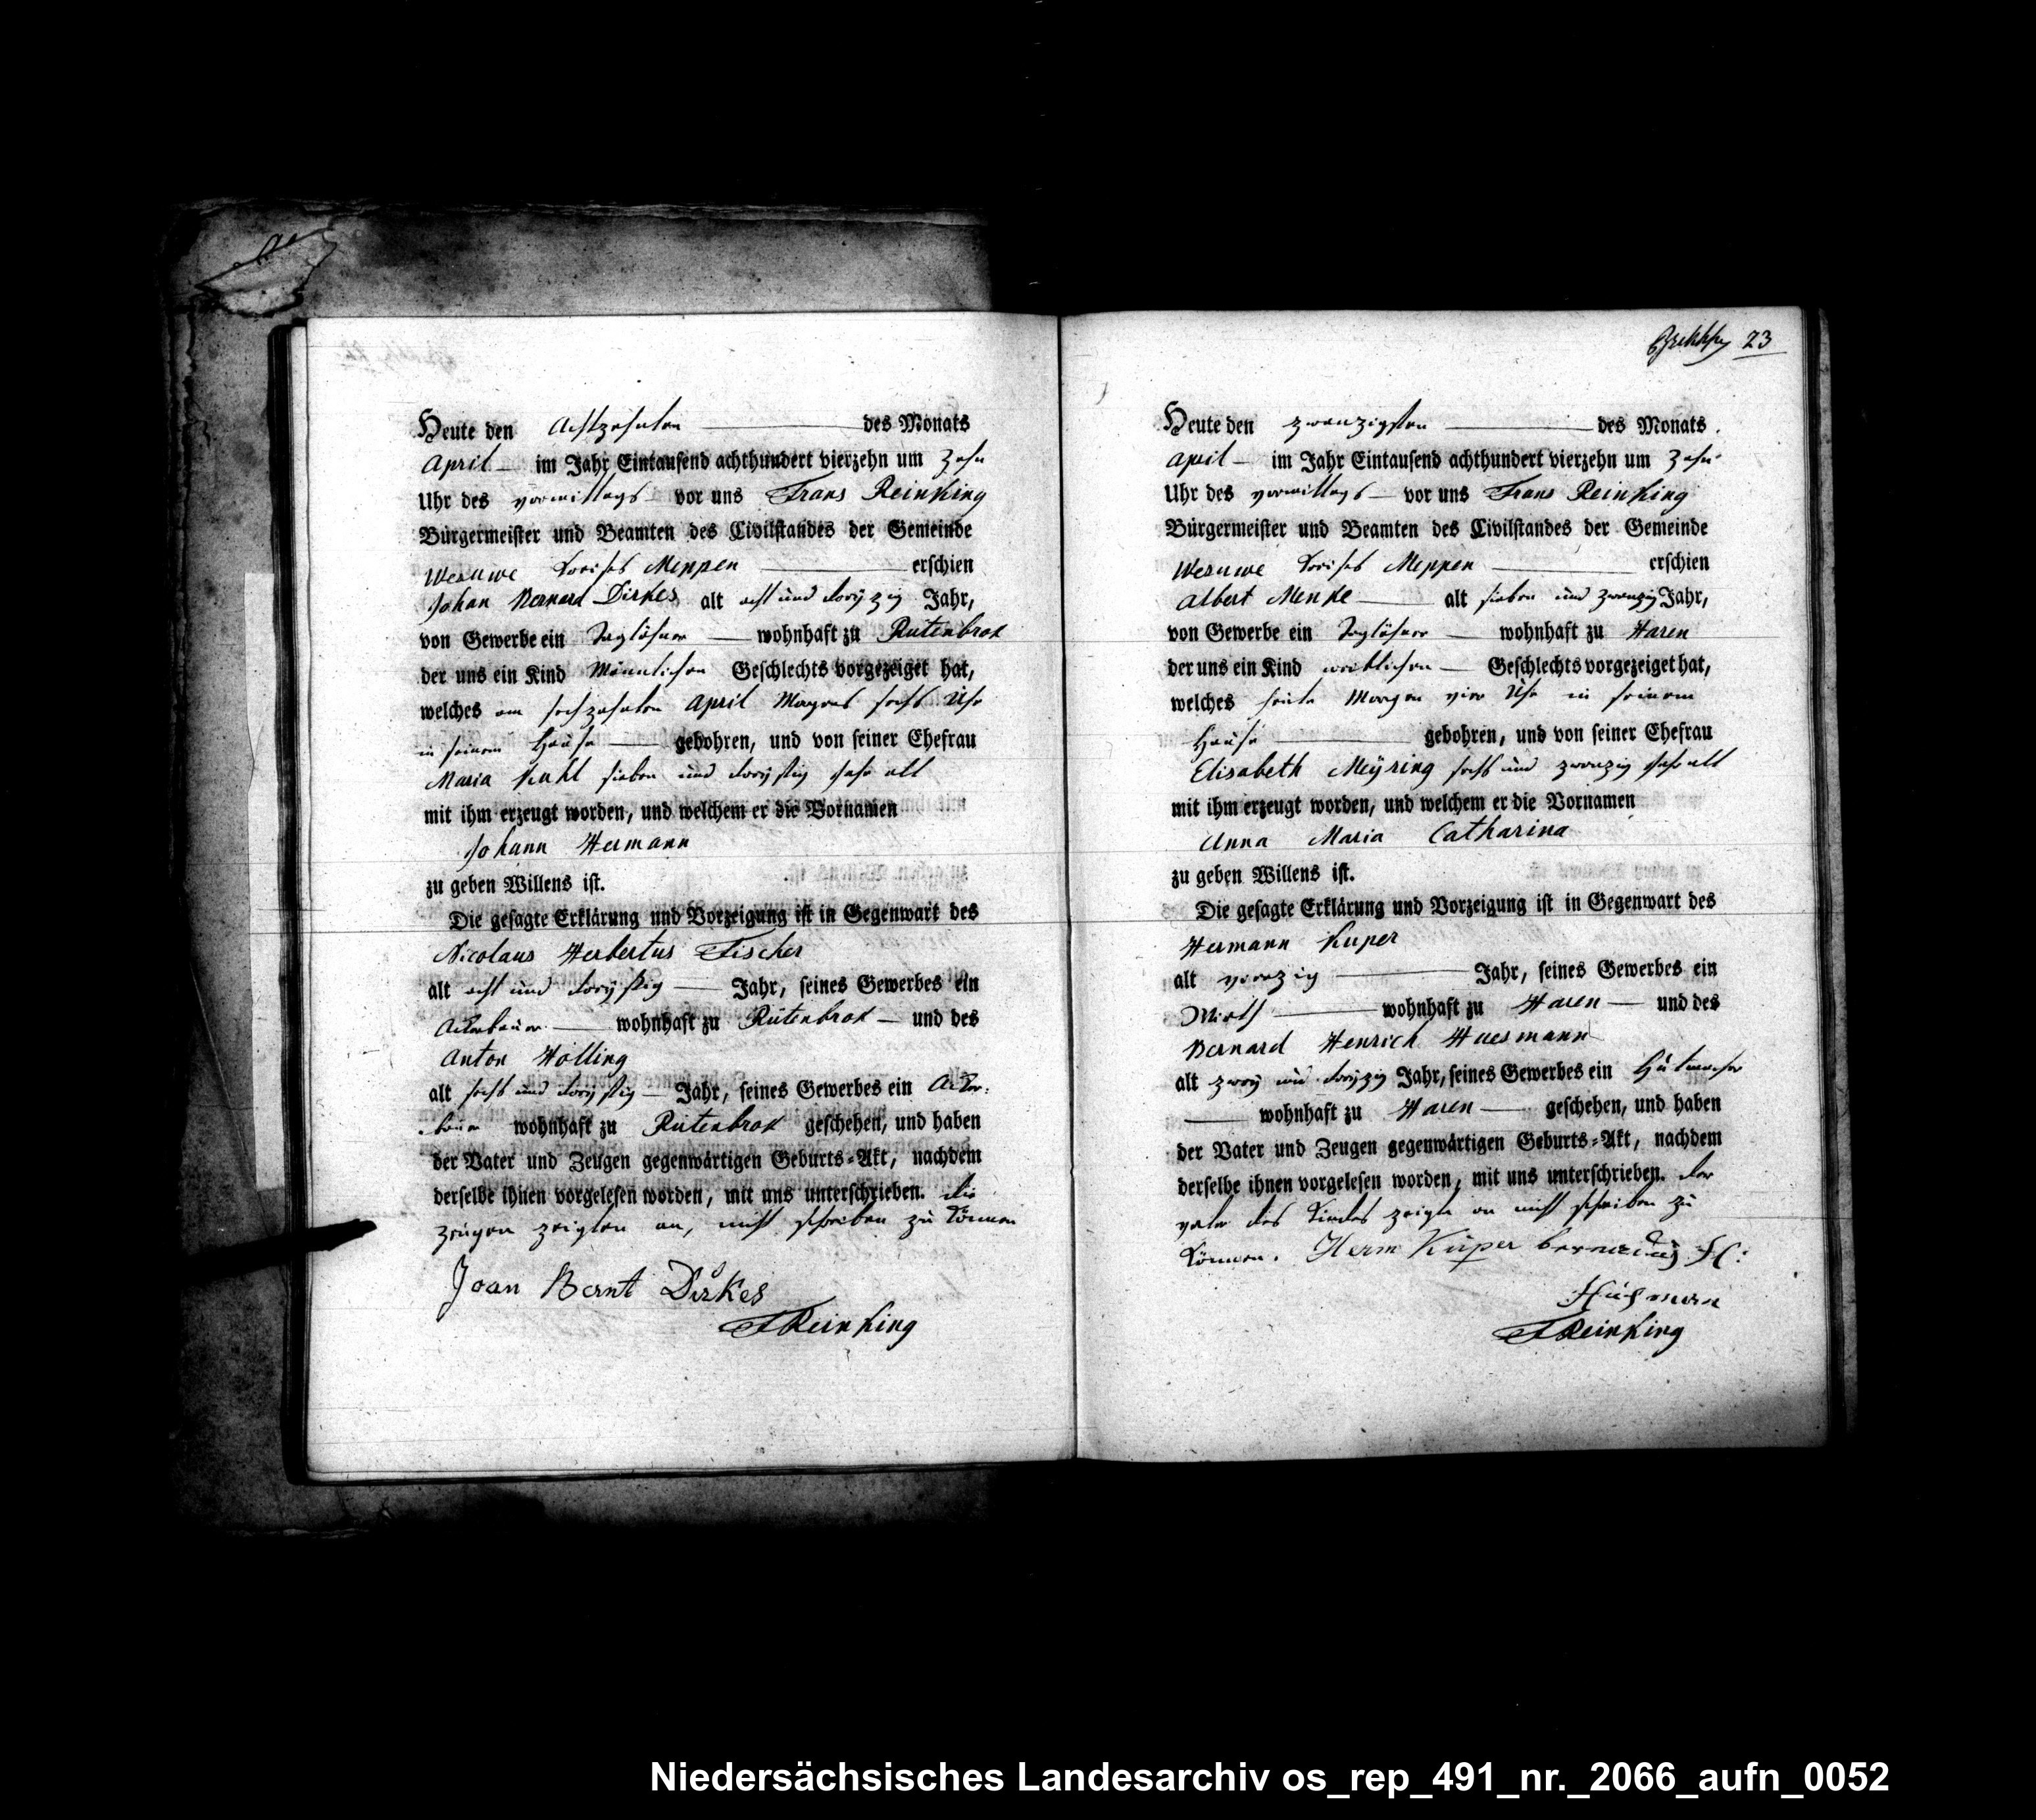 Heute den Achtzehnten des Monats
April im Jahr Eintausend achthundert vierzehn um zehn
Uhr des vormittags vor uns Frans Reinking
Bürgermeister und Beamten des Civilstandes der Gemeinde
Wesuwe Kreises Meppen erschien
Johan Bernard Dirkes alt acht und dreyzig Jahr,
von Gewerbe ein Taglöhner wohnhaft zu Rutenbrok
der uns ein Kind Männlichen Geschlechts vorgezeiget hat,
welches am sechzehnten April Morgens sechs Uhr
in seinem Hause gebohren, und von seiner Ehefrau
Maria Kuhl sieben und dreyßig Jahr alt
mit ihm erzeugt worden, und welchem er die Vornamen
Johann Hermann
zu geben Willens ist.
Die gesagte Erklärung und Vorzeigung ist in Gegenwart des
Nicolaus Herbertus Fischer
alt acht und dreyßig Jahr, seines Gewerbes ein
Ackerbauer wohnhaft zu Rütenbrok und des
Anton Holling
alt sechs und dreyßig Jahr, seines Gewerbes ein Acker:
bauer wohnhaft zu Rütenbrok geschehen, und haben
der Vater und Zeugen gegenwärtigen Geburts-Akt, nachdem
derselbe ihnen vorgelesen worden, mit uns unterschrieben. die
zeugen zeigten an, nicht schreiben zu können
Joan Bernt Dirkes
FReinking
23
Heute den zwanzigsten des Monats
April im Jahr Eintausend achthundert vierzehn um zehn
Uhr des vormittags vor uns Frans Reinking
Bürgermeister und Beamten des Civilstandes der Gemeinde
Wesuwe Kreises Meppen erschien
Albert Menke alt sieben und zwanzig Jahr,
von Gewerbe ein Taglöhner wohnhaft zu Haren
der uns ein Kind weiblichen Geschlechts vorgezeiget hat,
welches heute Morgen vier Uhr in seinem
Hause gebohren, und von seiner Ehefrau
Elisabeth Meÿring sechs und zwanzig Jahr alt
mit ihm erzeugt worden, und welchem er die Vornamen
Anna Maria Catharina
zu geben Willens ist.
Die gesagte Erklärung und Vorzeigung ist in Gegenwart des
Hermann Kuper
alt vierzig Jahr, seines Gewerbes ein
Wirth wohnhaft zu Haren und des
Bernard Henrich Huesmann
alt zwey und dreyzig Jahr, seines Gewerbes ein Hutmacher
wohnhaft zu Haren geschehen, und haben
der Vater und Zeugen gegenwärtigen Geburts-Akt, nachdem
derselbe ihnen vorgelesen worden, mit uns unterschrieben. der
vater des Kindes zeigte an nicht schreiben zu
können. Herm Küper bernardus H:
Hüsmann
FReinking
Niedersächsisches Landesarchiv os_rep_491_nr._2066_aufn_0052